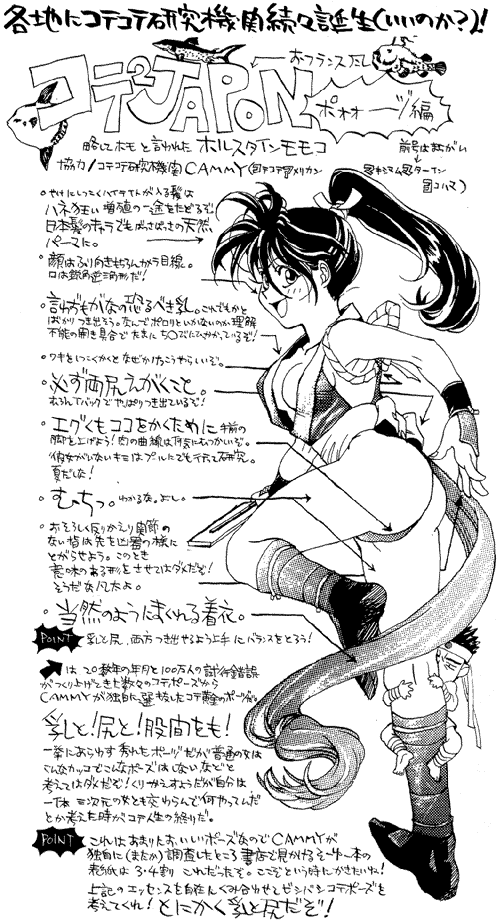 各地にコテコテ研究機関続々誕生(いいのか？)!
おフランス風
コテ²JAPON
ポォォーヅ編
略してホモと言われた ホルスタインモモコ
協力/コテコテ研究機関CAMMY
前号はまちがい
ハネ狂い増殖の一途をたどるぞ!
日本髪のキャラでもばさばさの天然
パーマに。
・顔はふり向きもちろんカメラ目線。
口は鋭角逆三角形だ!
・言わずもがなの恐るべき乳。これでもかと
ばかりつき出そう。なんでポロリといかないのか理解
・ワキをしつこくかくとなぜかけっこうやらしいぞ。
・必ず両尻えがくこと。
もちろんTバックでやっぱりつき出ているぞ!
・エグくもココをかくために手前の
脚を上げよう!肉の曲線は下気にもっこいぞ。
彼女がいないキミはプールにでも行って研究。
夏だしな!
・むっちっ。わかるな。よし。
・おそろしく反りかえり関節の
ない指は先を凶器の様に
とがらせよう。このとき
意味のある形をさせてはダメだぞ!
そうだなんたよ。
・当然のようにまくれる着衣。
POINT 乳と尻、両方つき出せるよう上手にバランスをとろう!
は20数年の年月と100万人の試行錯誤
がつくり上げてきた数々のコテポーズから
CAMMYが独自に選抜したコテ黄金のポーヅだ。
乳と!尻と!股間をも!
一挙にあらわす秀れたポーヅだが普通の女は
こんなカッコでこんなポーズはしないなどと
考えてはダメだぞ!くりかえすようだが自分は
一体三次元の女とも交わらんで何やってんだ
とか考えた時がコテ人生の終りだ。
POINT これはあまりにおいしいポーズなのでCAMMYが
独自に(またか)調査したところ書店で見かけるそーゆー本の
表紙は3・4割これだったぞ。ここぞという時にかきたいね!
上記のエッセンスを自在にくみ合わせてゼヒバシバシコテポーズを
考えてくれ!とにかく乳と尻だぞ!